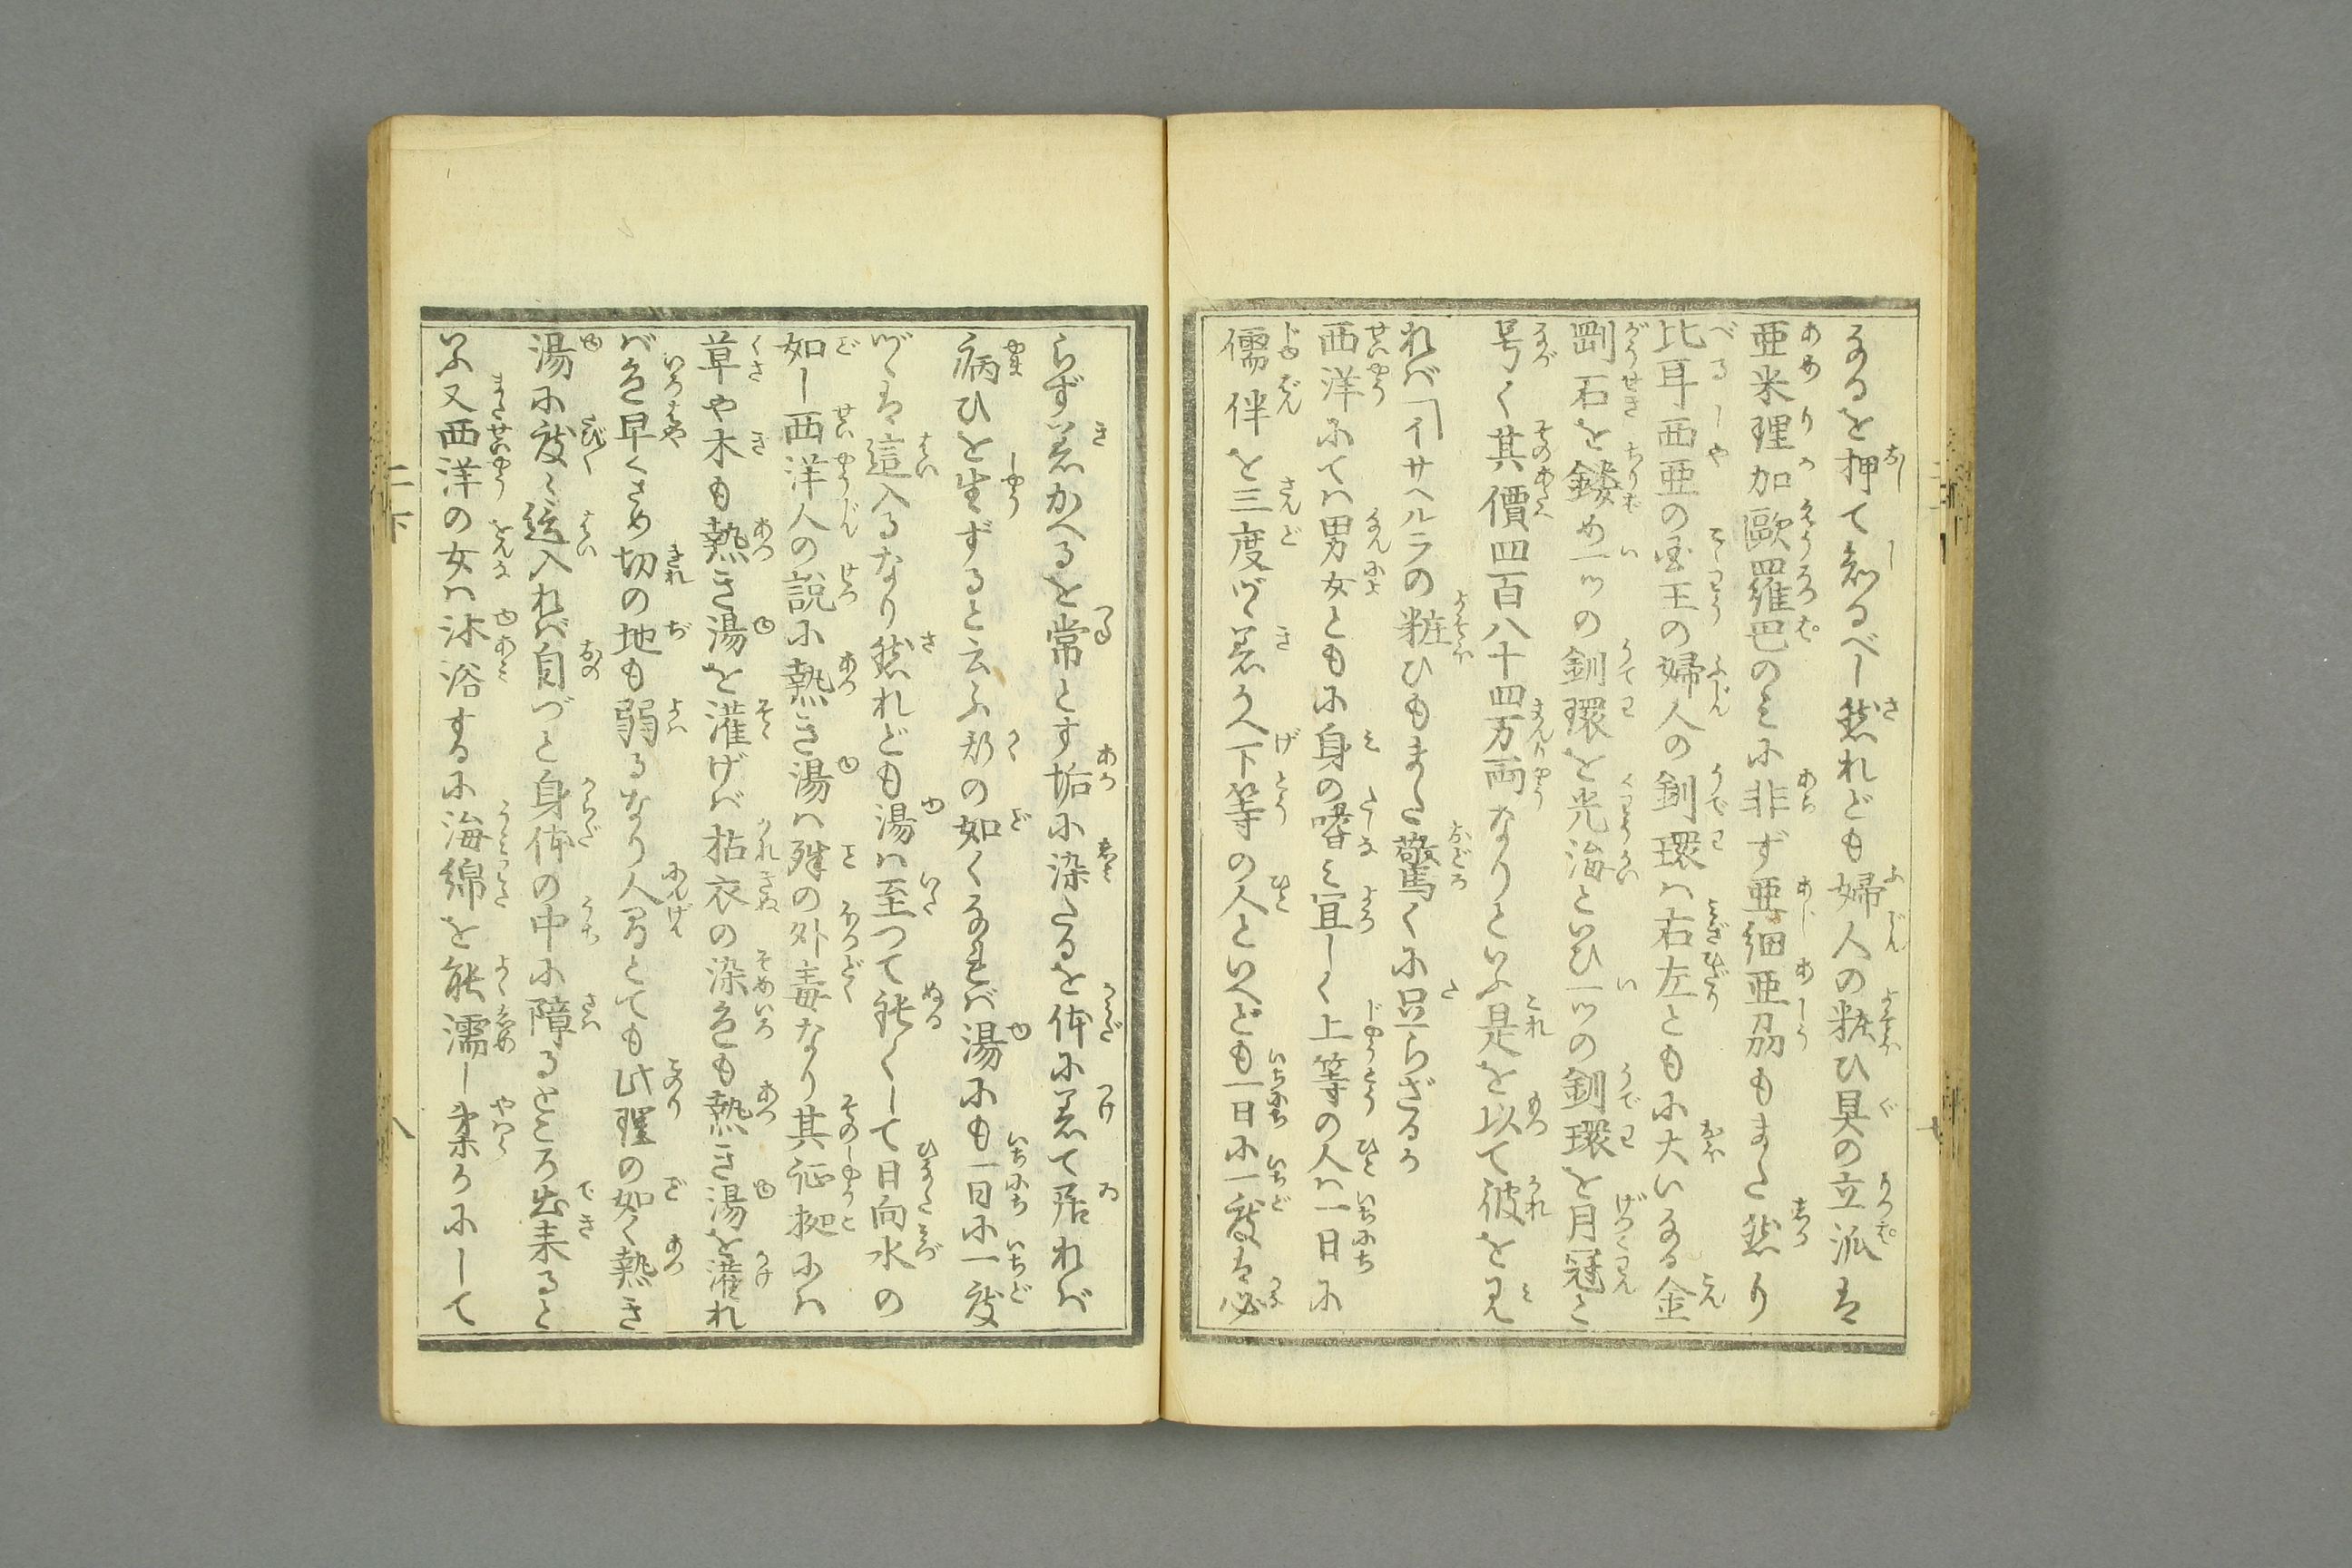 なるを押て知るべし然れども婦人の粧ひ具の立派は
亜米理加歐羅巴のミに非ず亜細亜刕もまた然り
比耳西亜の国王の婦人の釧環ハ右左ともに大いなる金
剛石を鏤め一ツの釧環を光海といひ一ツの釧環を月冠と
号く其價四百八十四万両なりといふ是を以て彼を見
れバ「イサヘルラの粧ひもまた驚くに足らざるか
西洋にてハ男女ともに身の嗜ミ宜しく上等の人ハ一日に
儒伴を三度ヅヽ着かへ下等の人といへども一日に一度は必
らず着かへるを常とす垢に染たるを体に着て居れバ
病ひを生ずると云ふ斯の如くなれバ湯にも一日に一度
ヅヽは這入るなり然れども湯ハ至つて鈍くして日向水の
如し西洋人の説に熱き湯ハ殊の外毒なり其証拠にハ
草や木も熱き湯を灌げバ枯衣の染色も熱き湯を灌れ
バ色早くさめ切の地も弱るなり人間とても此理の如く熱き
湯に度々這入れバ自づと身体の中に障るところ出来ると
いふ又西洋の女ハ沐浴するに海綿を能濡し柔かにして
二下
八